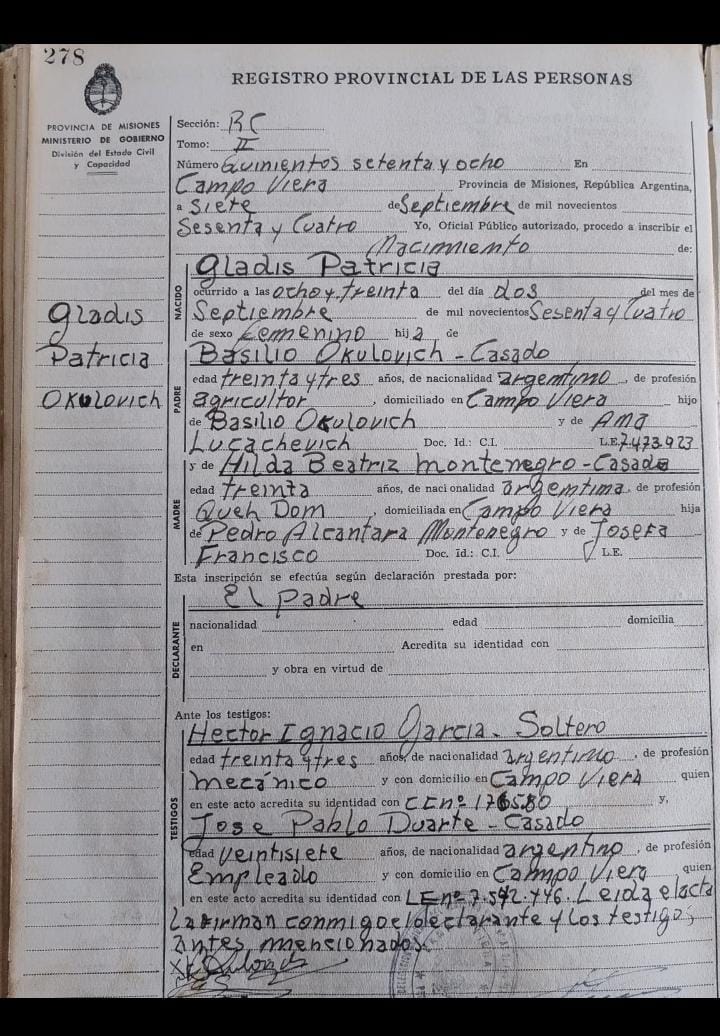 278
REGISTRO PROVINCIAL DE LAS PERSONAS
PROVINCIA DE MISIONES
MINISTERIO DE GOBIERNO
División del Estado Civil
y Capacidad
Gladis
Patricia
Okulovich
Sección: RC
Tomo: II
Número Quinientos setenta y ocho En
Campo Viera Provincia de Misiones, República Argentina,
a Siete de Septiembre de mil novecientos
Sesenta y Cuatro Yo, Oficial Público autorizado, procedo a inscribir el
Nacimiento de:
NACIDO
Gladis Patricia
ocurrido a las ocho y treinta del día dos del mes de
Septiembre de mil novecientos Sesenta y Cuatro
de sexo Femenino hija de
PADRE
Basilio Okulovich - Casado
edad treinta y tres años, de nacionalidad argentino, de profesión
agricultor, domiciliado en Campo Viera hijo
de Basilio Okulovich y de Ana
Lucachevich Doc. Id.: C.I. L.E. 7.473.923
MADRE
y de Hilda Beatriz Montenegro - Casada
edad treinta años, de nacionalidad argentina, de profesión
Queh Dom, domiciliada en Campo Viera hija
de Pedro Alcantara Montenegro y de Josefa
Francisco Doc. Id.: C.I. L.E.
Esta inscripción se efectúa según declaración prestada por:
DECLARANTE
El Padre
nacionalidad edad domicilia
en Acredita su identidad con
y obra en virtud de
Ante los testigos:
TESTIGOS
Hector Ignacio Garcia - Soltero
edad treinta y tres años, de nacionalidad argentino, de profesión
mecánico y con domicilio en Campo Viera quien
en este acto acredita su identidad con CI nº y,
Jose Pablo Duarte - Casado
edad veintisiete años, de nacionalidad argentino, de profesión
Empleado y con domicilio en Campo Viera quien
en este acto acredita su identidad con LE nº 7.542.446. Leida el acta
La firman conmigo el declarante y los testigos
antes mencionados.